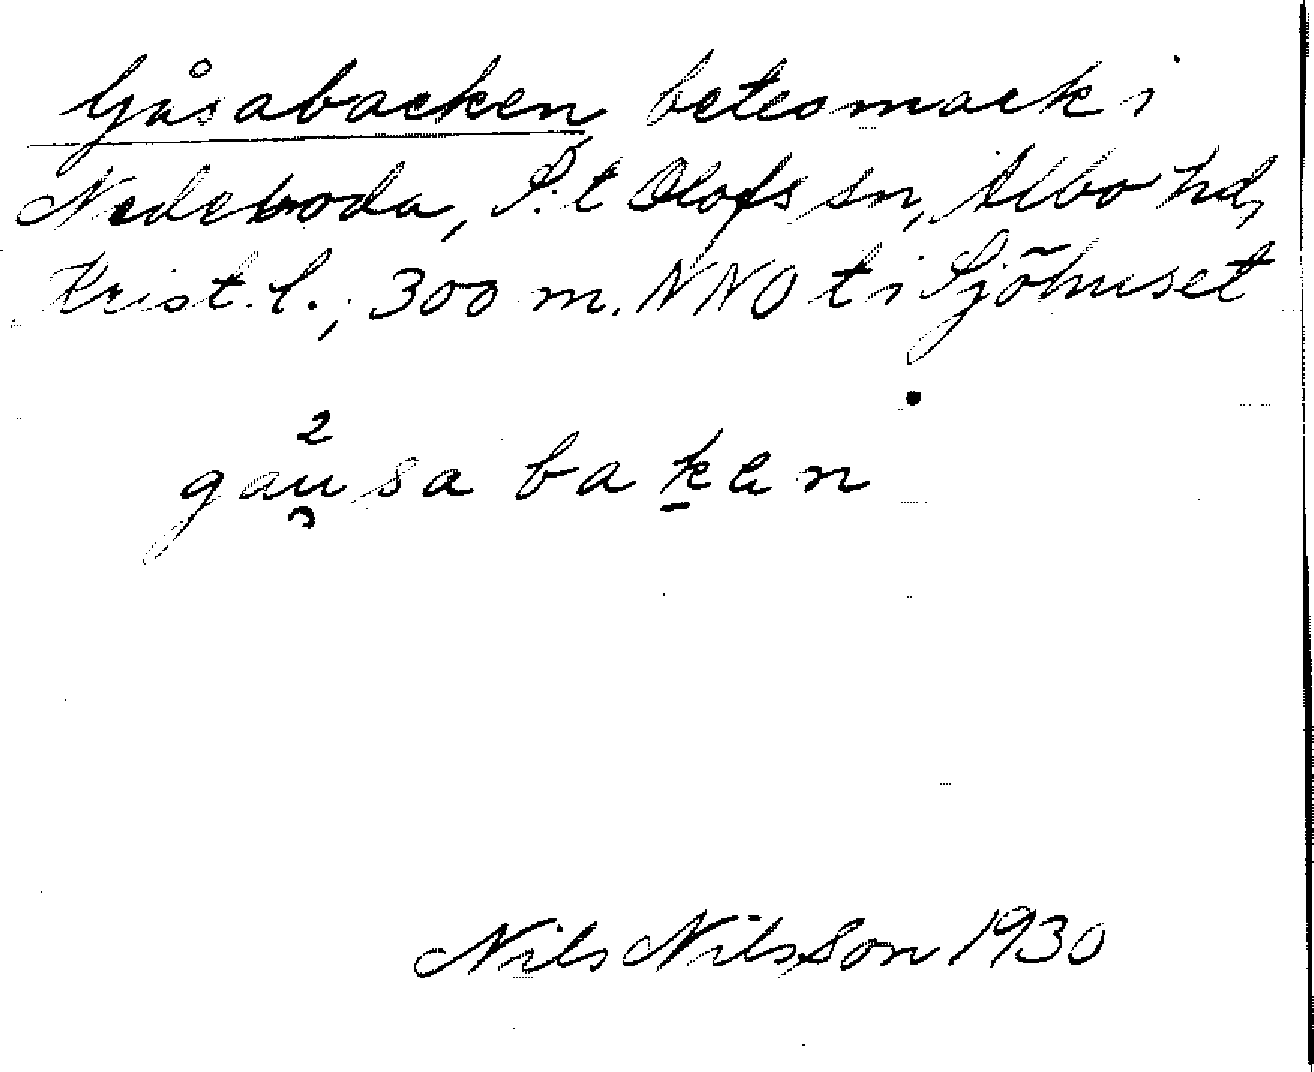 Gåsabacken, betesmark i
Nedeboda, S:t Olofs sn, Albo hd,
Krist. l.; 300 m. NNO t i Sjöhuset
2
gau̯sa baken
Nils Nilsson 1930